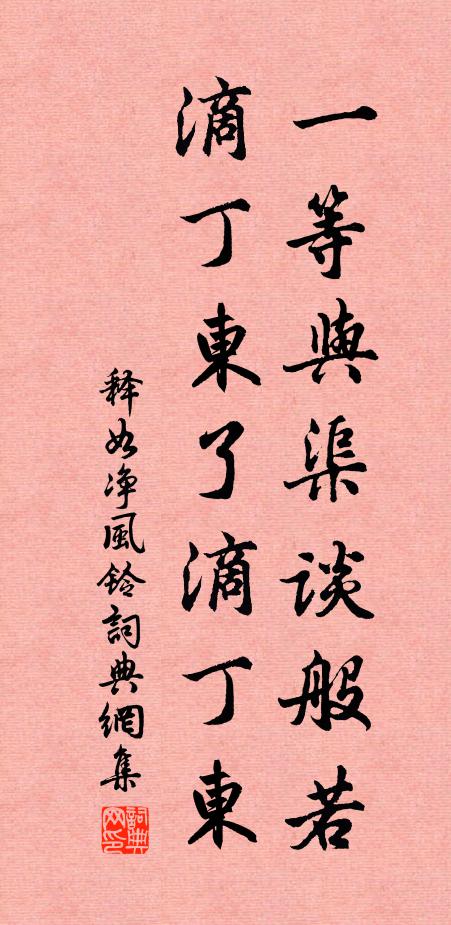 一等與渠談般若
滴丁東了滴丁東
释如净風鈴詞典網集
詞典网印